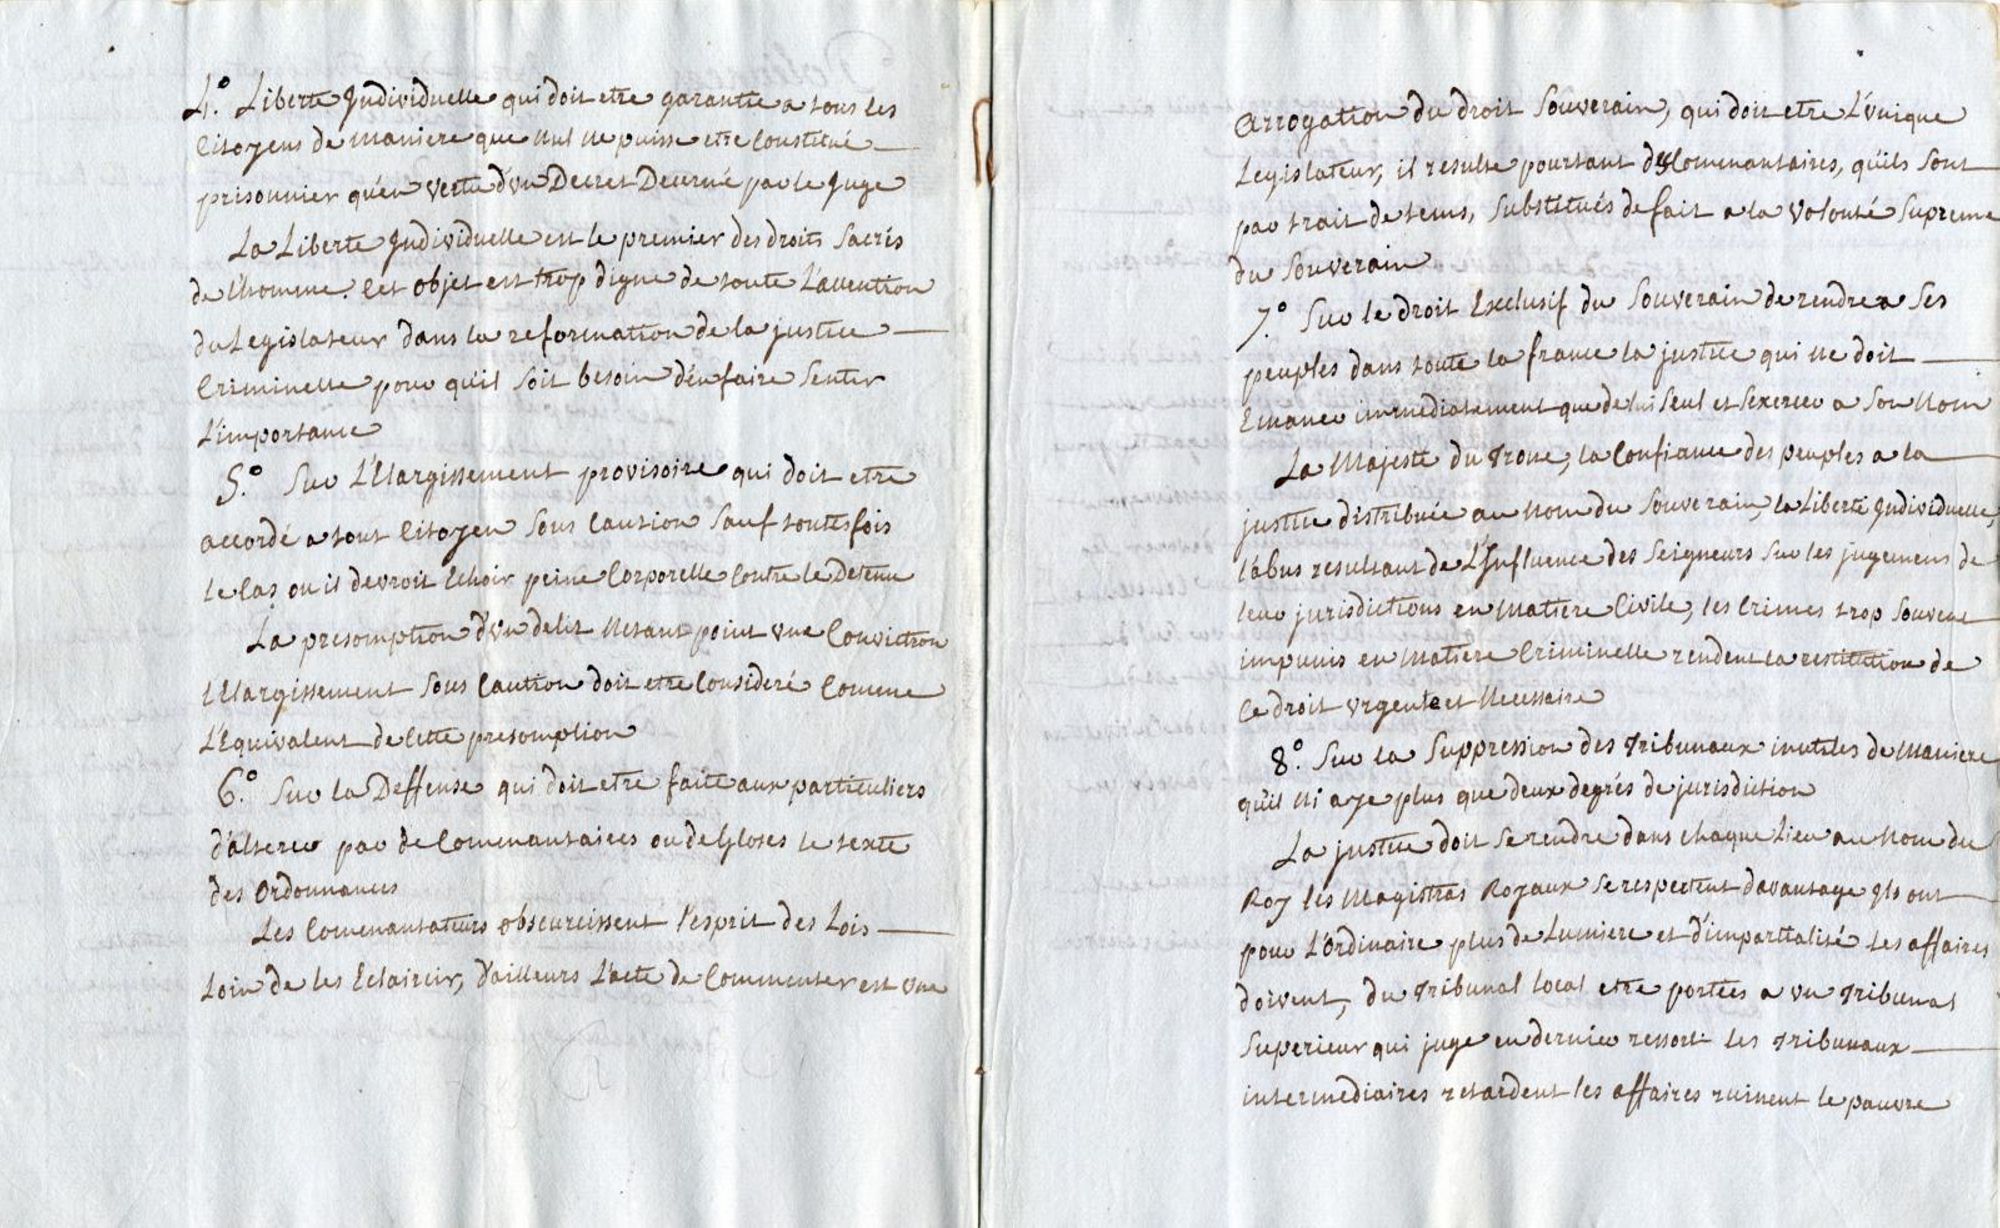 4.° Liberté Individuelle qui doit etre garantie a tous les
Citoyens de maniere que nul ne puisse etre Constitué
prisonnier qu'en vertu d'un Decret Decerné par le Juge
La Liberté Individuelle est le premier des droits Sacrés
de l'homme. Cet objet est trop digne de toute L'attention
du Legislateur dans la reformation de la justice
Criminelle pour qu'il soit besoin d'en faire Sentir
L'importance
5.° Sur L'Elargissement provisoire qui doit etre
accordé a tout Citoyen Sous Caution Sauf toutesfois
le Cas ou il devroit Echoir peine Corporelle Contre le Detenu
La presomption d'un delit N'etant point une Conviction
l'Elargissement Sous Caution doit etre Consideré Comme
L'Equivalent de Cette presomption
6.° Sur la Deffense qui doit etre faite aux particuliers
d'alterer par de Commantaires ou de Gloses le texte
des Ordonnances
Les Commantateurs obscurcissent l'esprit des Lois
Loin de les Eclaircir, d'ailleurs L'acte de Commenter est une
arrogation du droit Souverain, qui doit etre L'unique
Legislateur, il resulte pourtant des Commantaires, qu'ils sont
par trait de tems, Substitués de fait a la volonté Supreme
du Souverain
7.° Sur le droit Exclusif du Souverain de rendre a Ses
peuples dans toute la france la justice qui ne doit
Emaner immediatement que de lui Seul et S'exercer a Son Nom
La Majesté du Trone, la Confiance des peuples a la
justice distribuée au Nom du Souverain, la Liberté Individuelle,
l'abus resultant de L'Influence des Seigneurs Sur les jugemens de
leur jurisdictions en Matiere Civile, les Crimes trop Souvent
impunis en Matiere Criminelle rendent la restitution de
Ce droit Urgente et Necessaire
8.° Sur la Suppression des Tribunaux inutiles de Maniere
qu'il Ni aye plus que deux degrés de jurisdiction
La justice doit Se rendre dans chaque Lieu au Nom du
Roy les Magistras Royaux Se respectent davantage Ils ont
pour L'Ordinaire plus de Lumiere et d'impartialité Les affaires
doivent, du Tribunal local etre portées a un Tribunal
Superieur qui juge en dernier ressort Les Tribunaux
intermediaires retardent les affaires ruinent le pauvre